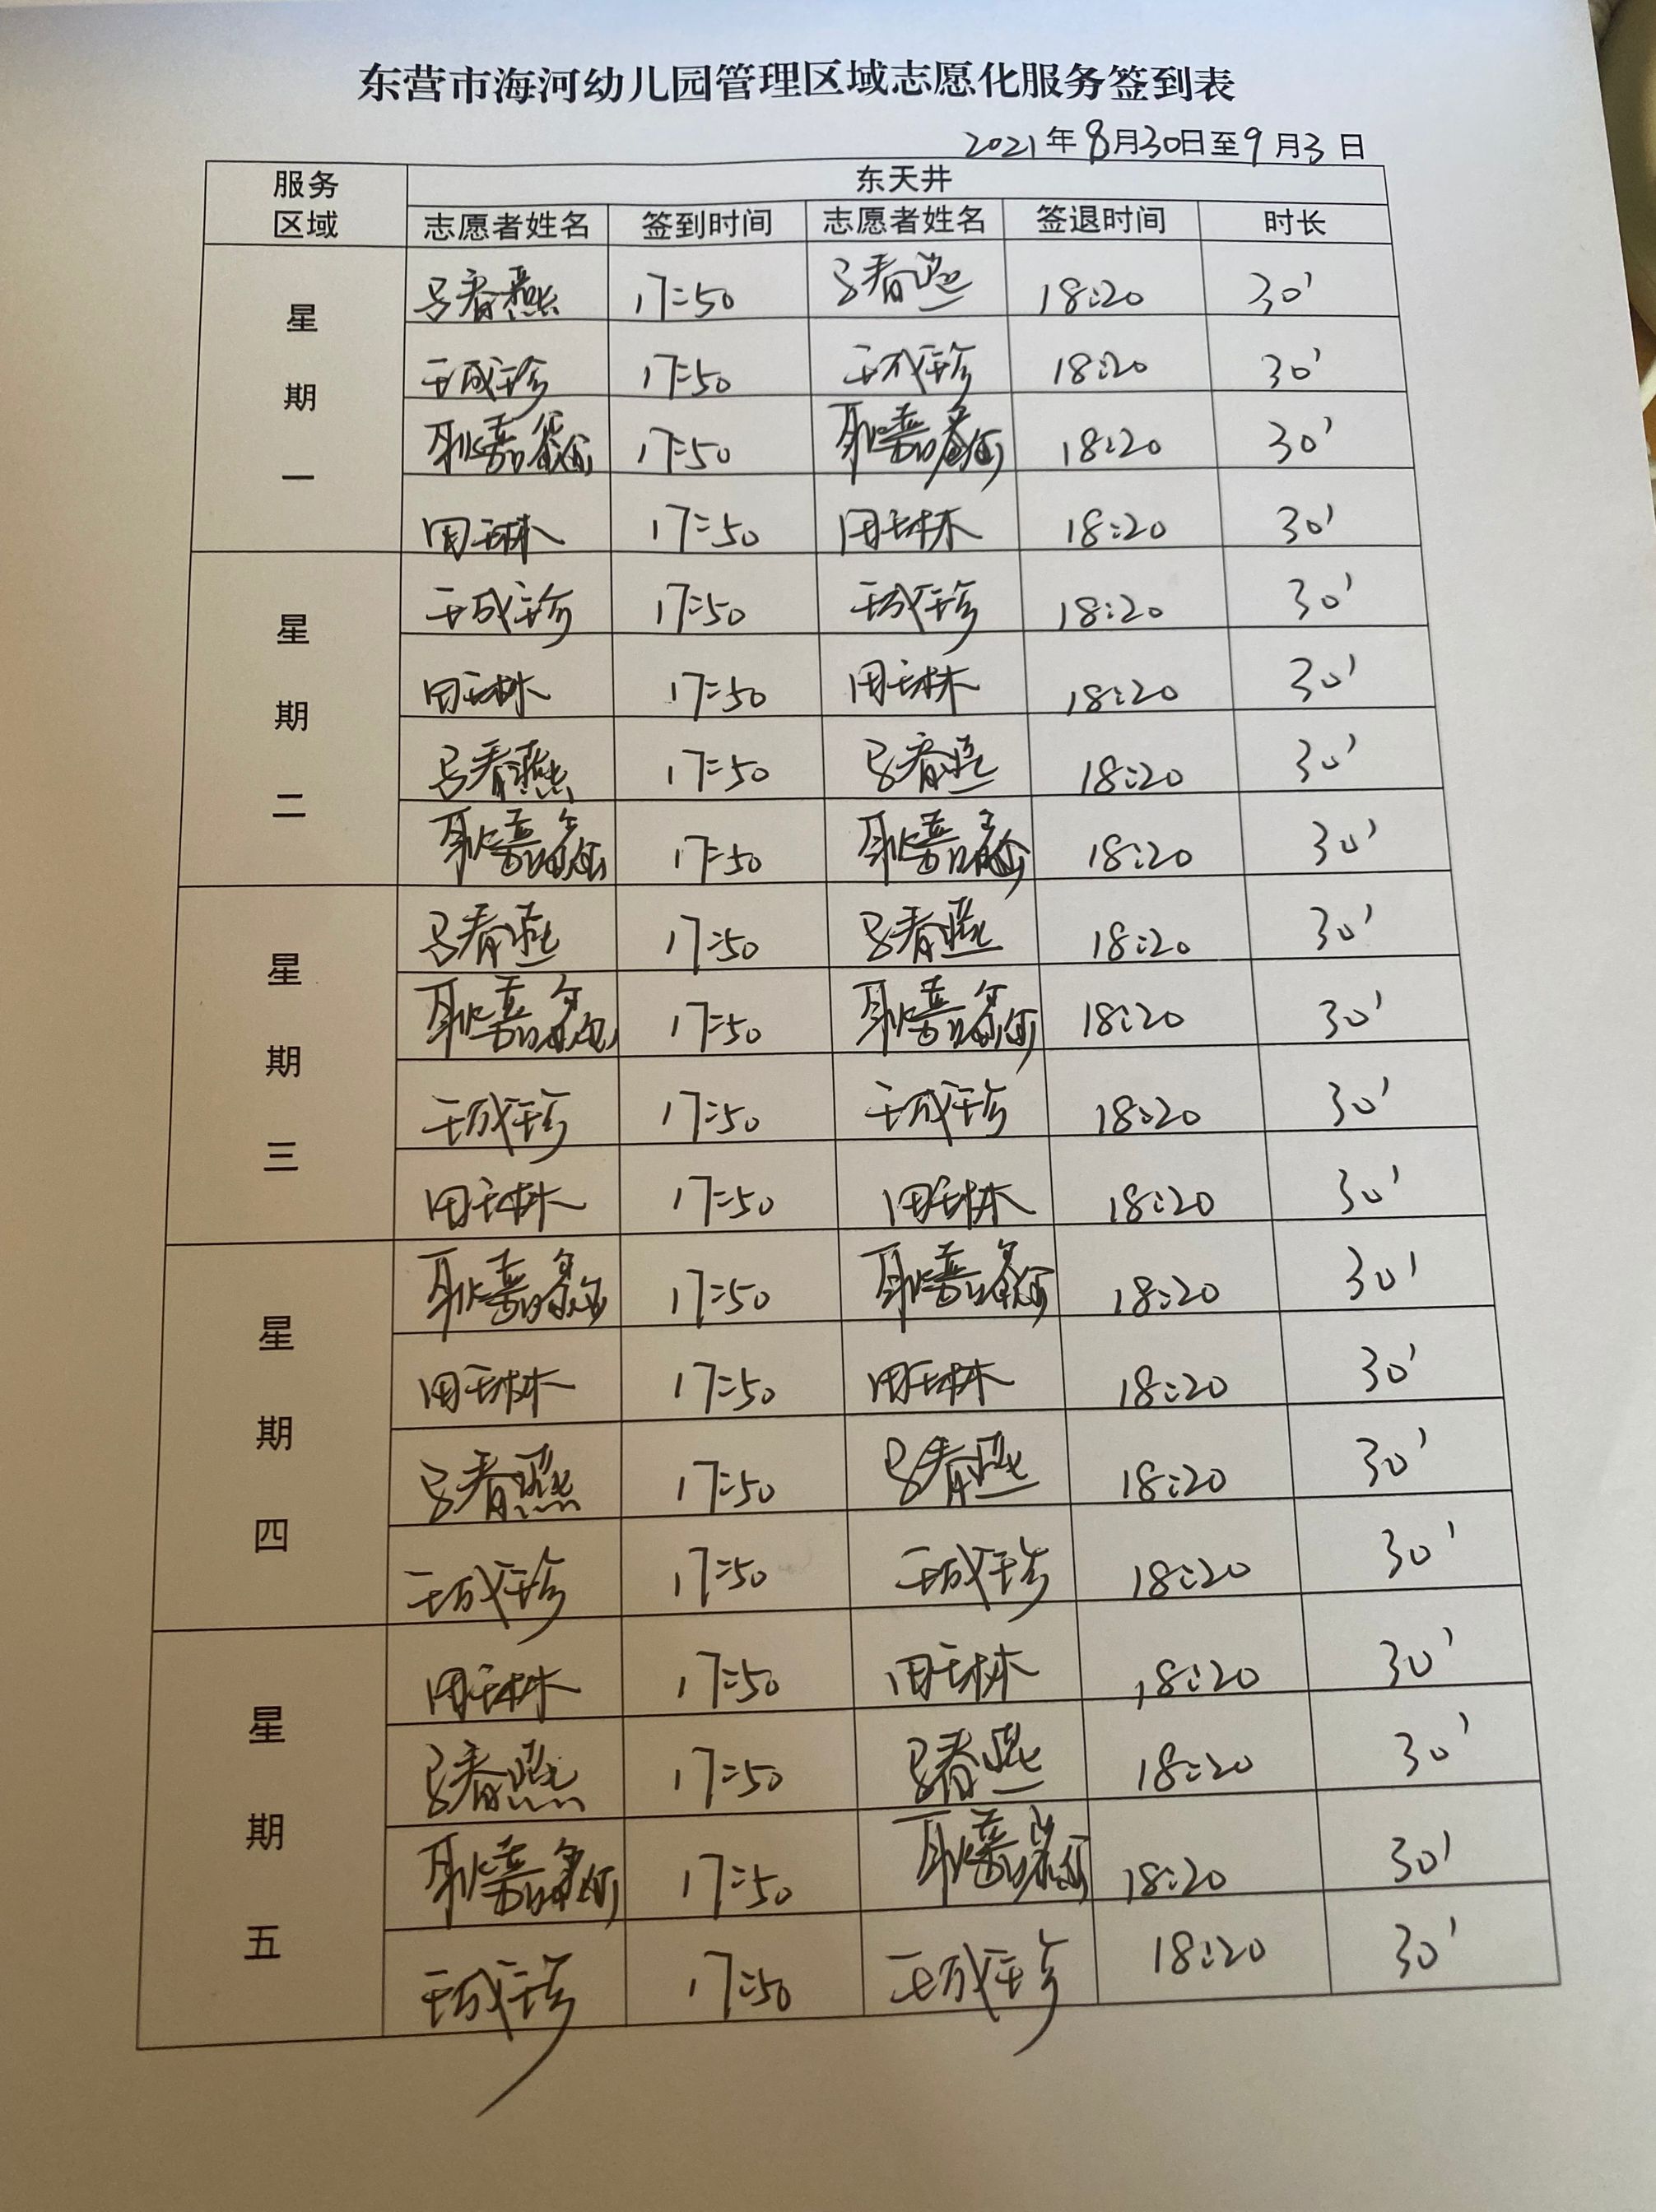 东营市海河幼儿园管理区域志愿化服务签到表
2021年8月30日至9月3日
服务区域 东天井
志愿者姓名 签到时间 志愿者姓名 签退时间 时长
星期一
吕春燕 17:50 吕春燕 18:20 30'
王成珍 17:50 王成珍 18:20 30'
耿嘉 17:50 耿嘉 18:20 30'
周玉林 17:50 周玉林 18:20 30'
星期二
王成珍 17:50 王成珍 18:20 30'
周玉林 17:50 周玉林 18:20 30'
吕春燕 17:50 吕春燕 18:20 30'
耿嘉 17:50 耿嘉 18:20 30'
星期三
吕春燕 17:50 吕春燕 18:20 30'
耿嘉 17:50 耿嘉 18:20 30'
王成珍 17:50 王成珍 18:20 30'
周玉林 17:50 周玉林 18:20 30'
星期四
耿嘉 17:50 耿嘉 18:20 30'
周玉林 17:50 周玉林 18:20 30'
吕春燕 17:50 吕春燕 18:20 30'
王成珍 17:50 王成珍 18:20 30'
星期五
周玉林 17:50 周玉林 18:20 30'
吕春燕 17:50 吕春燕 18:20 30'
耿嘉 17:50 耿嘉 18:20 30'
王成珍 17:50 王成珍 18:20 30'